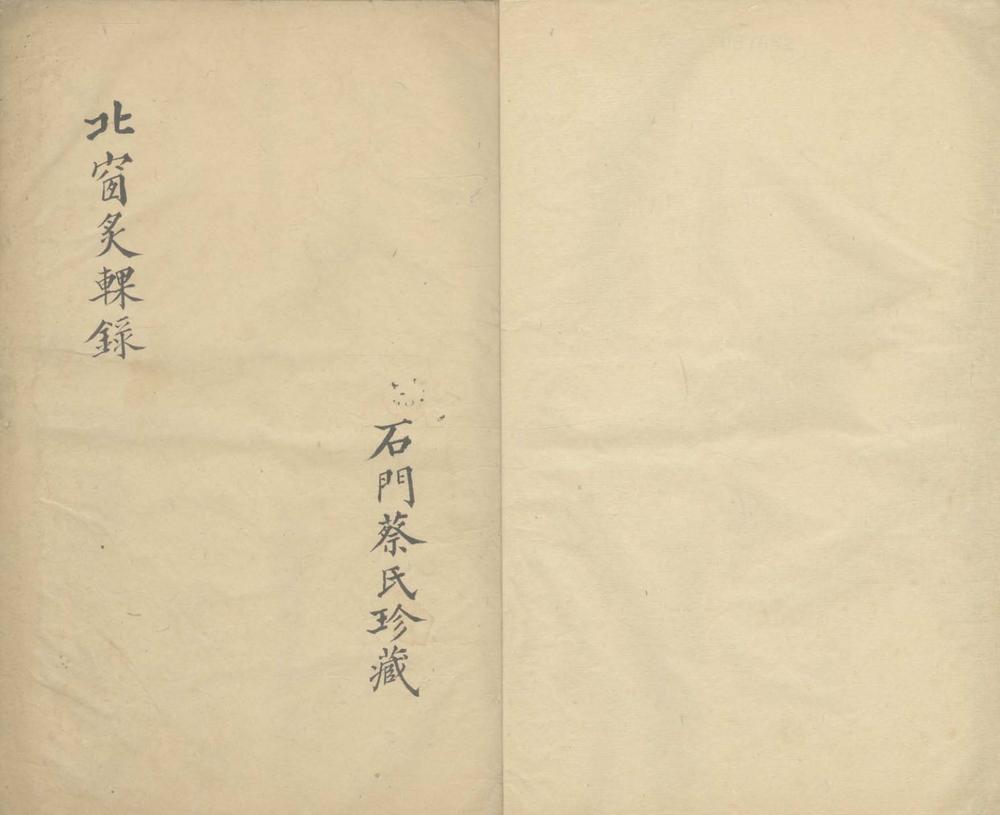 石門蔡氏珍藏
北窗炙輠錄